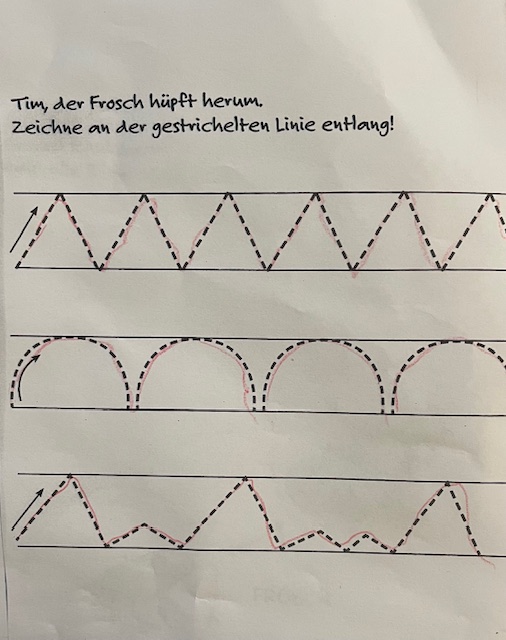 Tim, der Frosch hüpft herum.
Zeichne an der gestrichelten Linie entlang!